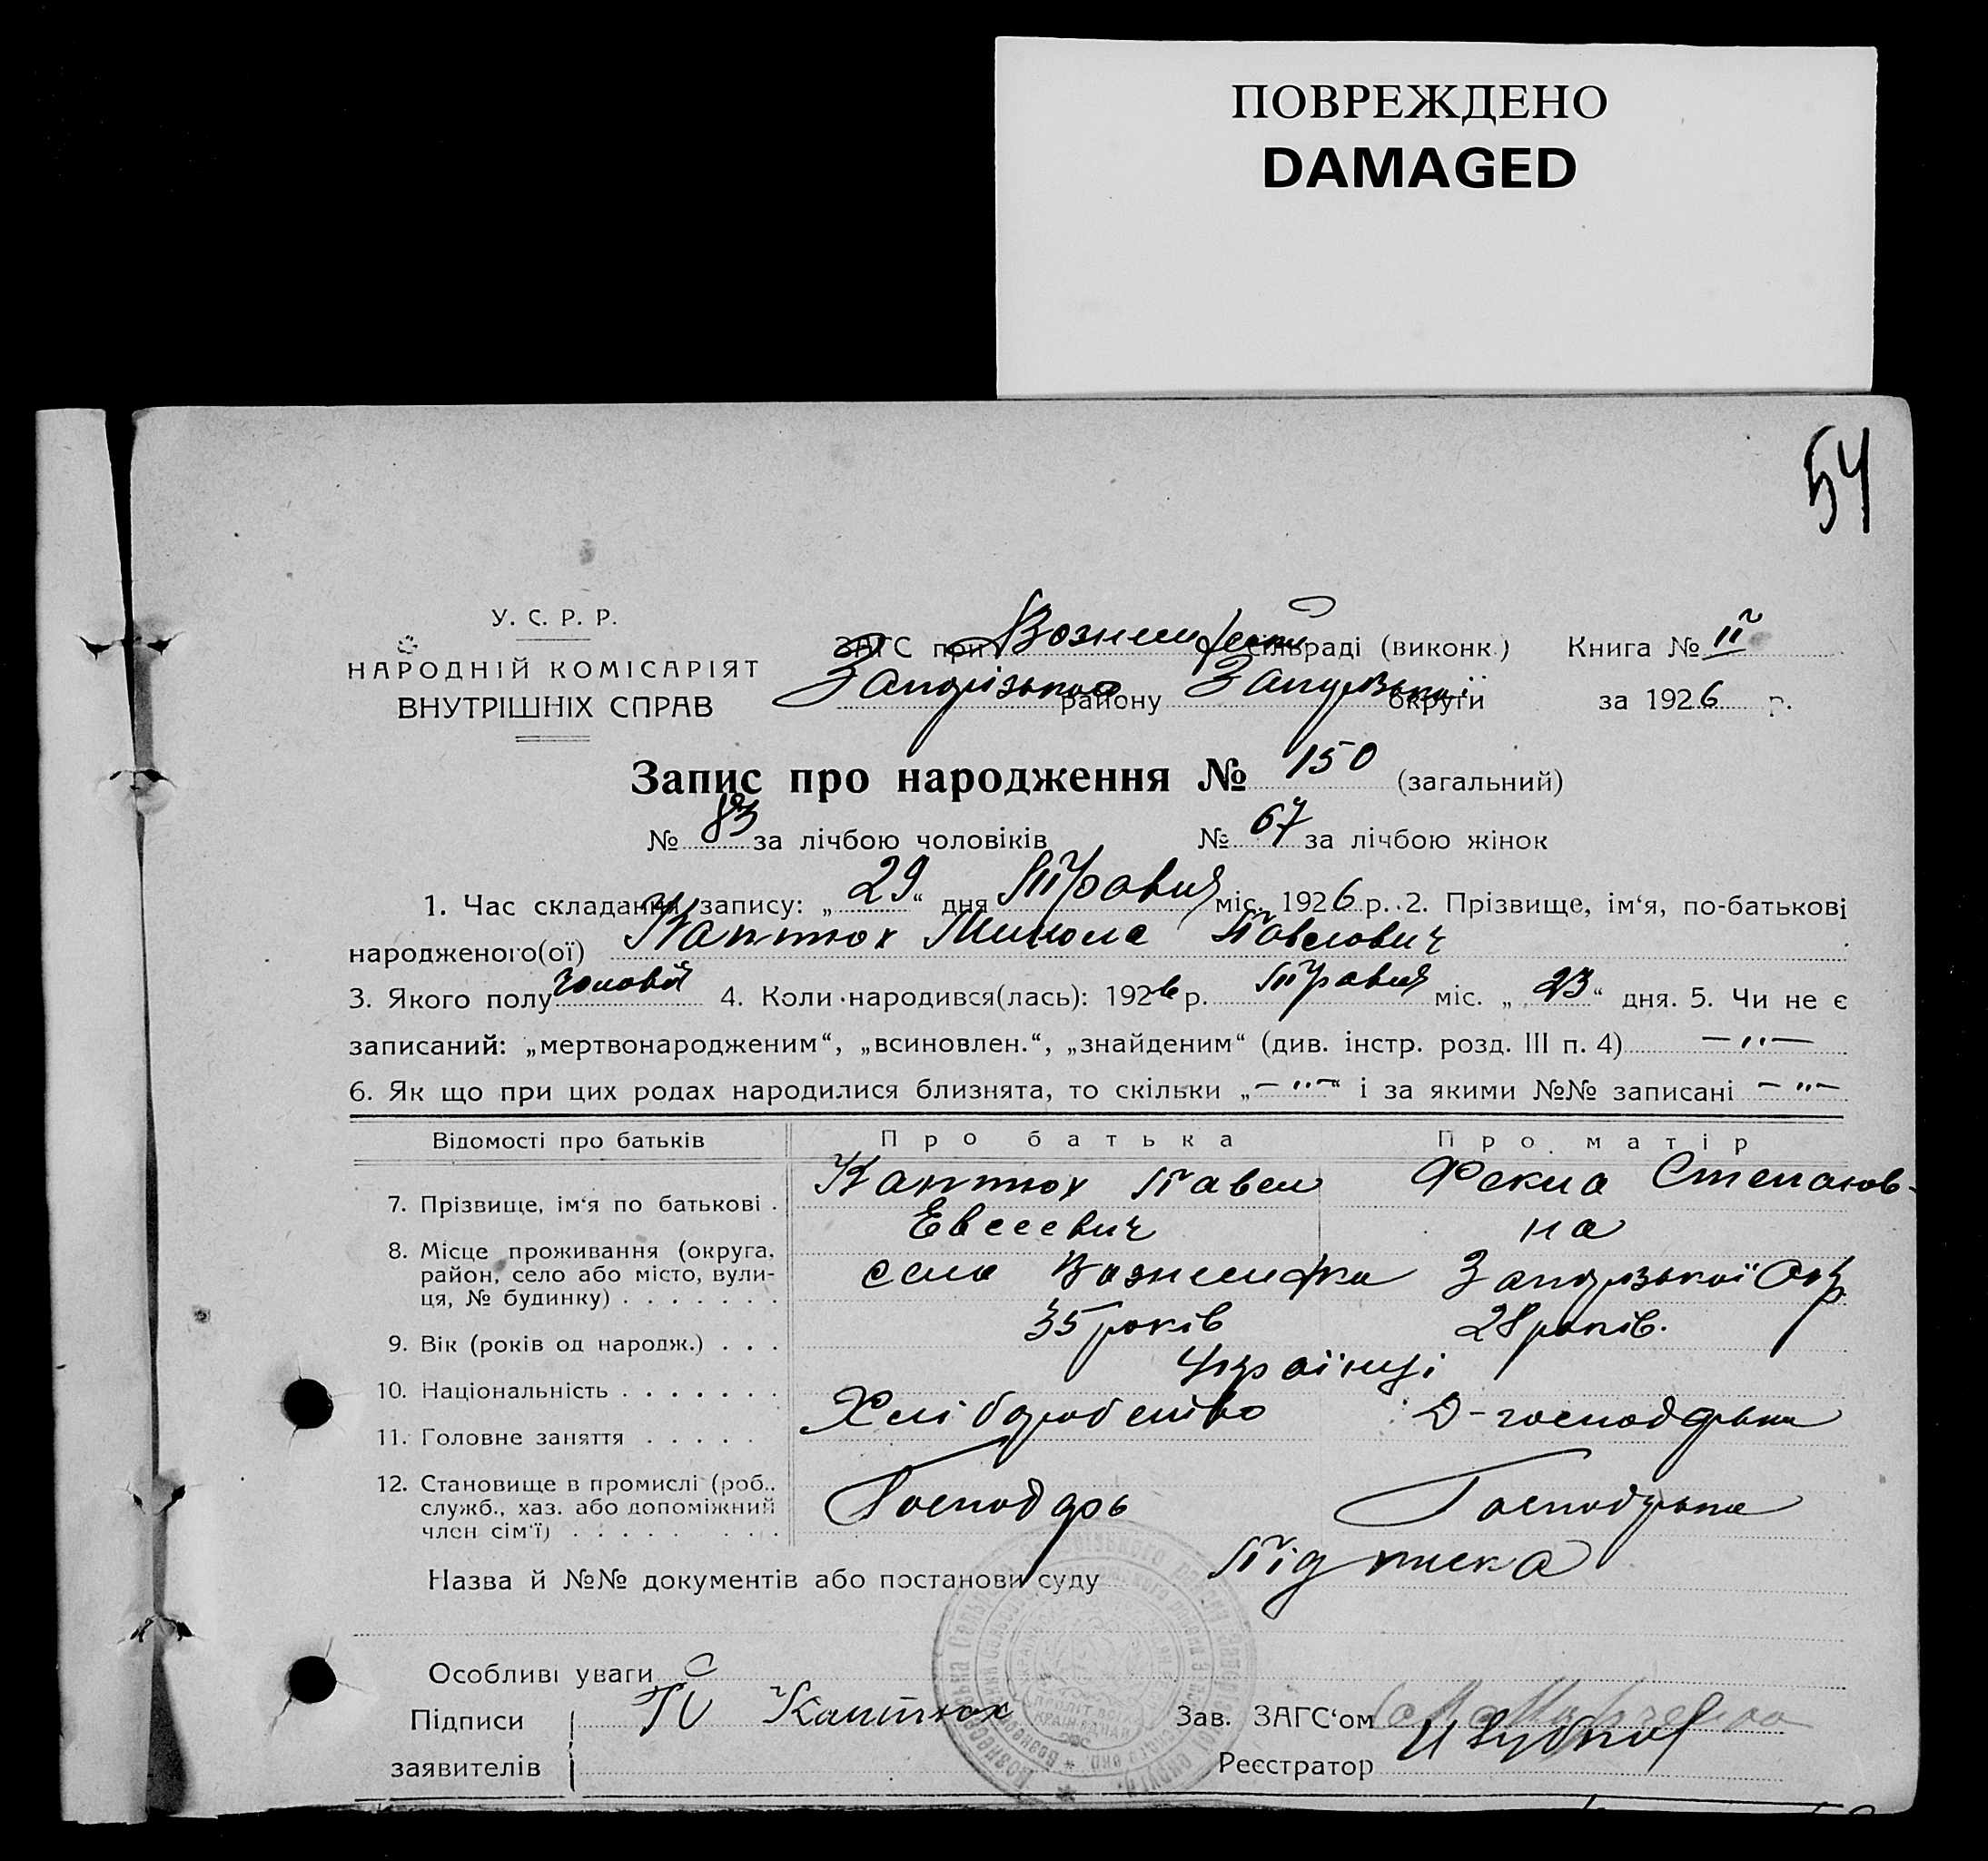 ПОВРЕЖДЕНО
DAMAGED
54
У. С. Р. Р.
НАРОДНІЙ КОМІСАРІЯТ
ВНУТРІШНІХ СПРАВ
ЗАГС при сільраді (виконк.) Книга № II
району округи за 1926 р.
Запис про народження № 150 (загальний)
№ 83 за лічбою чоловіків № 67 за лічбою жінок
1. Час складання запису: „29“ дня Травня міс. 1926 р. 2. Прізвище, ім‘я, по-батькові
народженого(ої) Каптюх Микола Павлович
3. Якого полу чоловій 4. Коли народився(лась): 1926 р. Травня міс. „23“ дня. 5. Чи не є
записаний: „мертвонародженим“, „всиновлен.“, „знайденим“ (див. інстр. розд. III п. 4) —"—
6. Як що при цих родах народилися близнята, то скільки „—"—“ і за якими №№ записані —"—
Відомості про батьків Про батька Про матір
7. Прізвище, ім‘я по батькові . Каптюх Павел Фекла Степанов-
Евсеевич на
8. Місце проживання (округа, район, село або місто, вулиця, № будинку) . . . . . . . село Вознесенка Запорізької Окр.
9. Вік (років од народж.) . . . 35 років 28 років.
10. Національність . . . . . . . Українці
11. Головне заняття . . . . . Хліборобство Д-господарка
12. Становище в промислі (роб., служб., хаз. або допоміжний член сім‘ї) . . . . . . . . Господарь Господарка
Назва й №№ документів або постанови суду Підписка
Особливі уваги
Підписи
заявителів
Каптюх
Зав. ЗАГС‘ом
Реєстратор